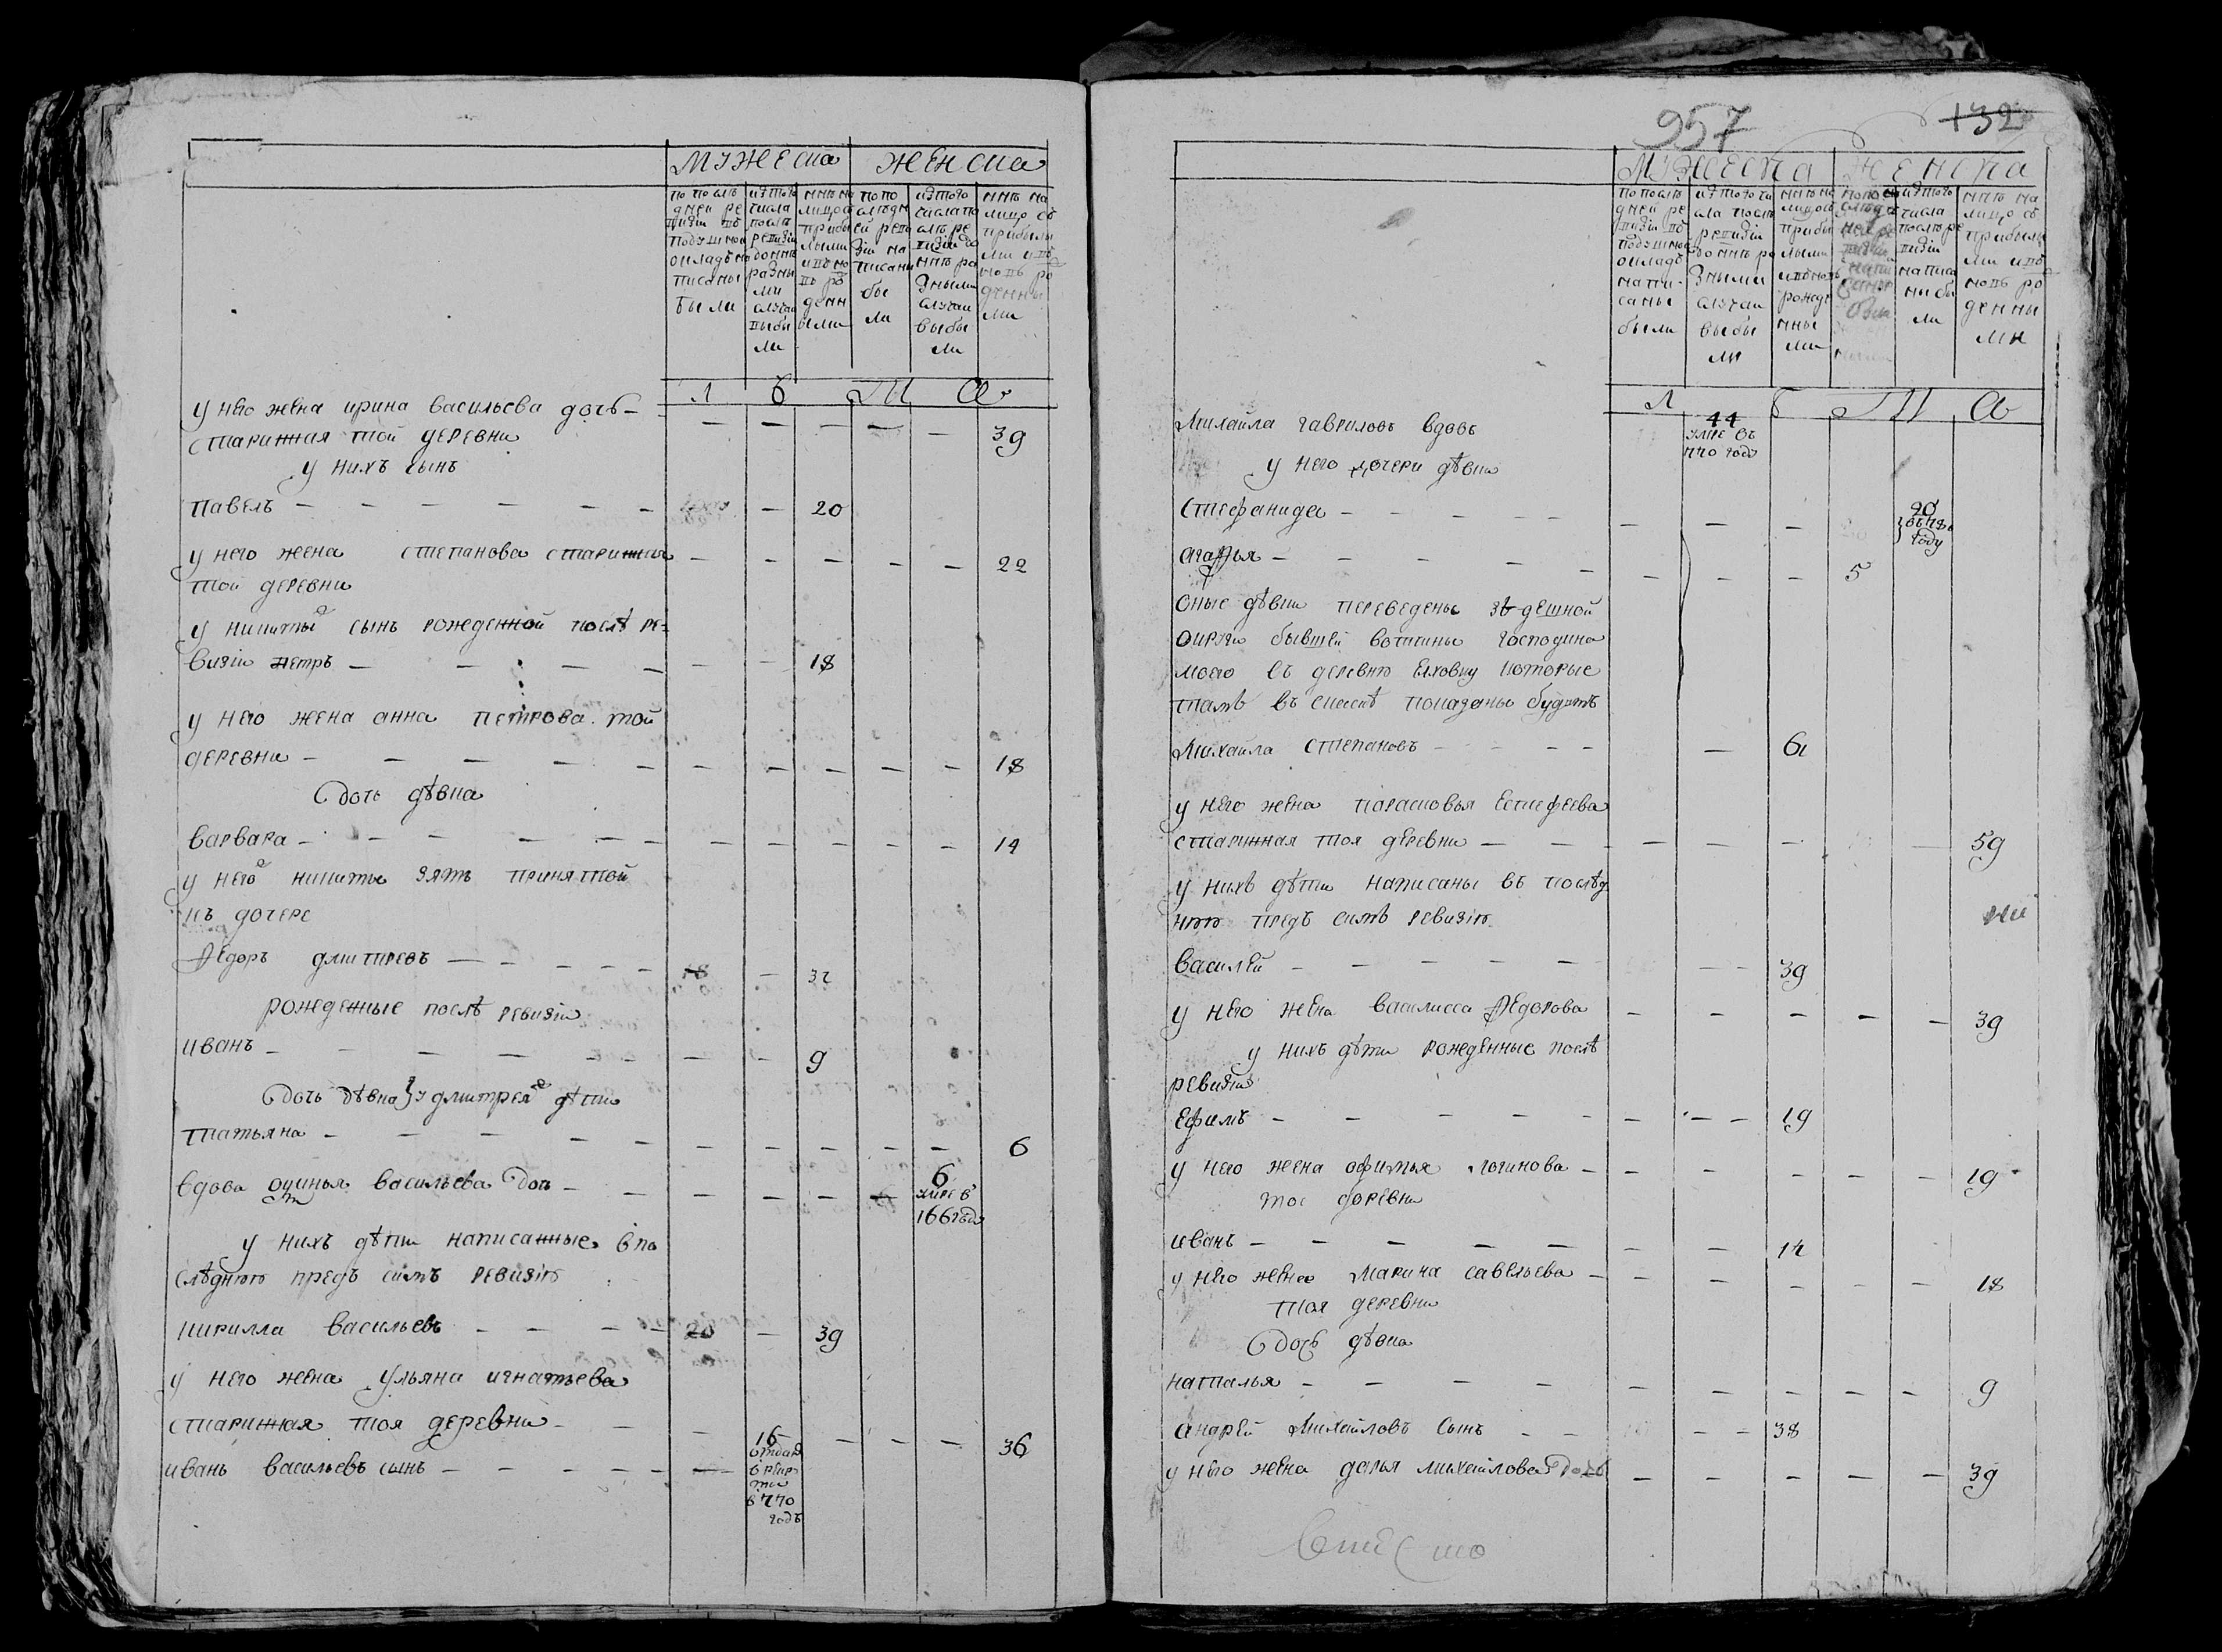 мужеска женска
по послѣ
дней ре
визіи въ
подушном
окладѣ на
писаны
были
изъ того
числа
послѣ
ревизіи
до ннѣ
разны
ми
случаи
выбы
ли
ннѣ на
лицо съ
прибы
лыми
и въ но
въ ро
денн
ыми
по по
слѣдн
ей реви
зіи на
писаны
бы
ли
изъ того
числа по
слѣ ре
визіи до
ннѣ ра
зными
случаи
выбы
ли
ннѣ на
лицо съ
прибылы
ми и въ
новь ро
денны
ми
л б м а
у него жена ирина васильева дочь
старинная той деревни — — — — — 39
у нихъ сынъ
павелъ — — — — — — — 20
у него жена степанова старинная — — — — — 22
той деревни
у никиты сынъ рожденной послѣ ре
визіи петръ — — — — — — 18
у него жена анна петрова той
деревни — — — — — — — — — — 18
дочь дѣвка
варвара — — — — — — — — — — 14
у него никиты зять принятой
къ дочере
Ѳедоръ дмитревъ — — — — — 18 — 32
рожденные послѣ ревизіи
иванъ — — — — — — — — 9
дочь дѣвка у дмитрея дѣти
татьяна — — — — — — — — — — 6
вдова васильева дочь — — — — — 6
умре в
766 году
у нихъ дѣти написанные в по
слѣднюю предъ симъ ревизію
кирилла васильевъ — — — — 20 — 39
у него жена ульяна игнатьева
старинная тоя деревни — — — — — — 36
иванъ васильевъ сынъ — — — — — 16
отдан
в рекру
ты
в 770
годъ
957 132
мужеска женска
по послѣ
дней ре
визіи въ
подушном
окладѣ
напи-
саны
были
изъ того чи
сла послѣ
ревизіи
до ннѣ ра
зными
случаи
выбы
ли
ннѣ на
лицо съ
прибы
лыми
и въ новь
рожде
нны
ми
изъ того
числа
послѣ ре
визіи
написа
ны бы
ли
ннѣ на
лицо съ
прибылы
ми и въ
новь ро
денны
ми
л б м а
Михайла гавриловъ вдовъ 44
умре въ
770 году
у него дочери дѣвки
Стефанида — — — — — — — — 20
году
агафья — — — — — — — — 5
оные дѣвки переведены здешной
округи бывшей вотчины господина
моего въ деревню Елховку которые
тамъ въ сказкѣ показаны будутъ
Михайла степановъ — — — — — 61
у него жена парасковья Естифеева
старинная тоя деревни — — — — — — — 59
у нихъ дѣти написаны въ послѣд
нюю предъ симъ ревизію
василей — — — — — — — 39
у него жена василиса Ѳедорова — — — — — 39
у нихъ дѣти рожденные послѣ
ревизіи
Ефимъ — — — — — — — — 19
у него жена офимья логинова — — — — — — 19
тое деревни
иванъ — — — — — — — 17
у него жена Марина савельева — — — — — — 18
тоя деревни
дочь дѣвка
наталья — — — — — — — — — 9
андрей Михайловъ сынъ — — — — 38
у него жена дарья михайлова дочь — — — — — 39